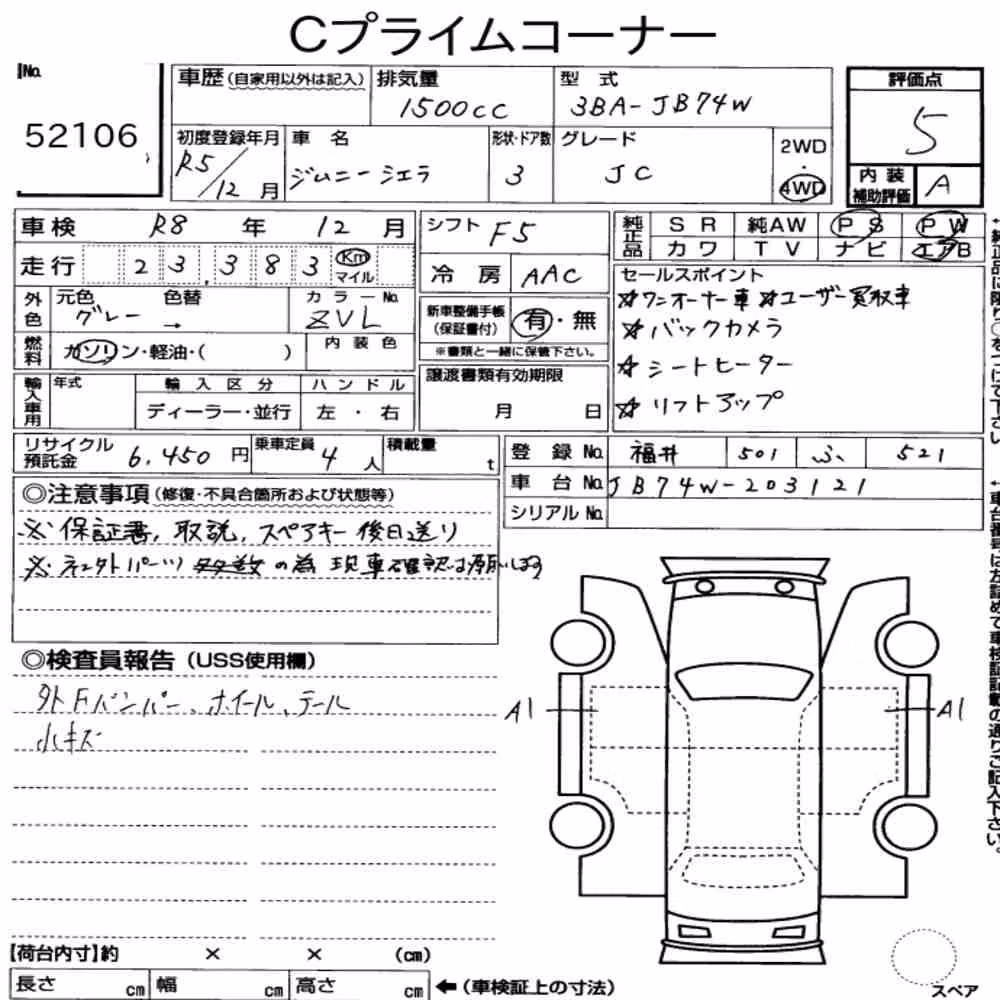 Cプライムコーナー
No.
52106
車歴(自家用以外は記入)
排気量
1500cc
型式
3BA-JB74W
評価点
5
内装補助評価
A
初度登録年月
R5/12月
車名
ジムニーシエラ
形状・ドア数
3
グレード
JC
2WD
・
4WD
車検 R8年 12月
走行 23,383 Km マイル
外色
元色 色替
グレー →
カラーNo.
ZVL
燃料
ガソリン・軽油・( )
内装色
輸入車用
年式
輸入区分
ディーラー・並行
ハンドル
左・右
シフト F5
冷房 AAC
新車整備手帳(保証書付)
有・無
※書類と一緒に保管下さい。
譲渡書類有効期限
月 日
純正品
SR 純AW PS PW
カワ TV ナビ エアB
セールスポイント
☆ワンオーナー車 ☆ユーザー買取車
☆バックカメラ
☆シートヒーター
☆リフトアップ
リサイクル預託金 6,450円
乗車定員 4人
積載量 t
登録No. 福井 501 ふ 521
車台No. JB74W-203121
シリアルNo.
◎注意事項(修復・不具合箇所および状態等)
※保証書,取説,スペアキー後日送り
の為 現車確認
◎検査員報告(USS使用欄)
外Fバンパー、ホイール、テール
小キズ
A1
A1
【荷台内寸】約 × × (cm)
長さ cm 幅 cm 高さ cm ←(車検証上の寸法)
スペア
↑純正品に限り○をつけて下さい
↑車台番号は左詰めで車検証記載の通りご記入下さい。